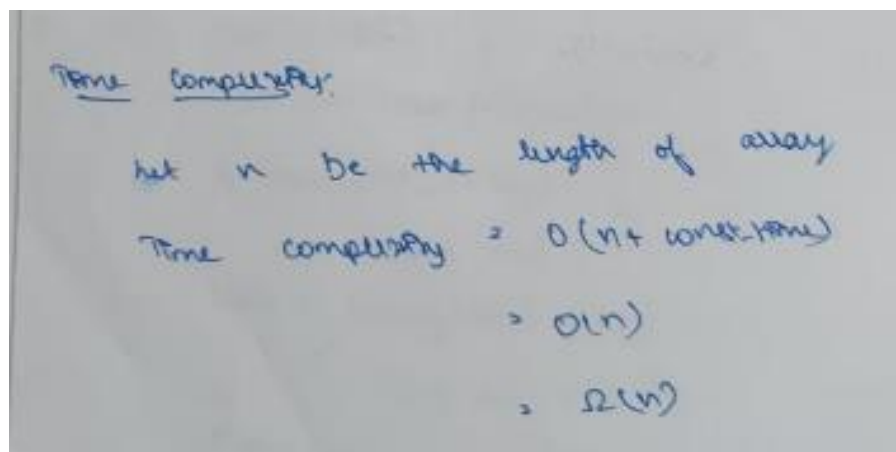 Time Complexity:
Let n be the length of array
Time complexity = O(n + const_time)
= O(n)
= Ω(n)